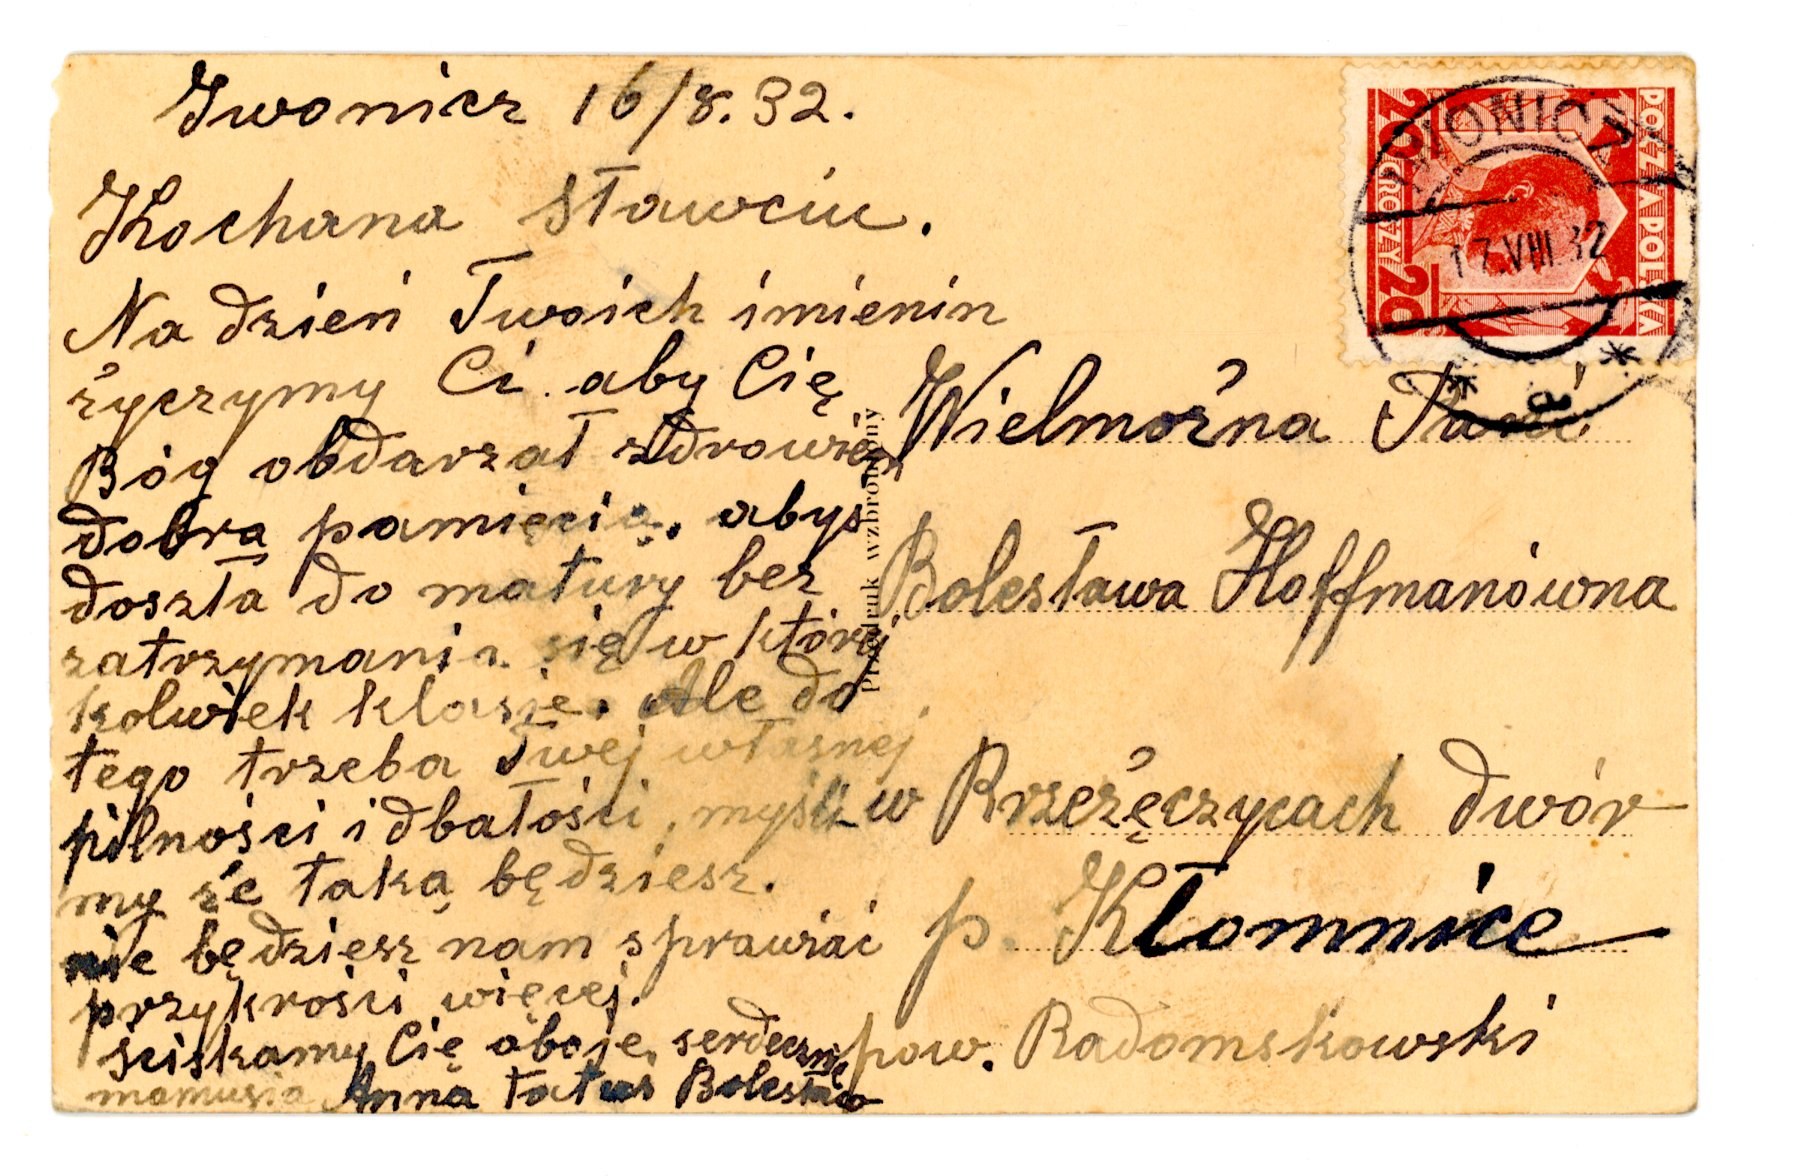 Iwonicz 16/8.32.
Kochana Sławciu.
Na dzień Twoich imienin
życzymy Ci aby Cię
Bóg obdarzał zdrowiem
dobrą pamięcią, abyś
doszła do matury bez
zatrzymania się w której
kolwiek klasie. Ale do
tego trzeba Twej własnej
pilności i dbałości, myśli-
my że taką będziesz.
nie będziesz nam sprawiać
przykrości więcej.
ściskamy Cię oboje, serdecznie
mamusia Anna tatuś Bolesław
Przedruk wzbroniony
POCZTA POLSKA
20 GROSZY 20
IWONICZ
17.VIII.32
* a *
Wielmożna Pani
Bolesława Hoffmanówna
w Rzeżęczycach dwór
p. Kłomnice
pow. Radomskowski